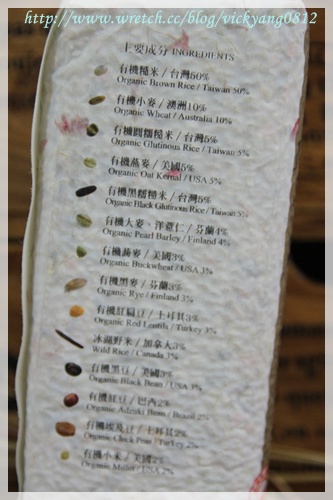 http://www.wretch.cc/blog/vickyang0812
主要成分 INGREDIENTS
有機糙米 / 台灣50%
Organic Brown Rice / Taiwan 50%
有機小麥 / 澳洲10%
Organic Wheat / Australia 10%
有機圓糯糙米 / 台灣5%
Organic Glutinous Rice / Taiwan 5%
有機燕麥 / 美國5%
Organic Oat Kernal / USA 5%
有機黑糯糙米 / 台灣5%
Organic Black Glutinous Rice / Taiwan 5%
有機大麥、洋薏仁 / 芬蘭4%
Organic Pearl Barley / Finland 4%
有機蕎麥 / 美國3%
Organic Buckwheat / USA 3%
有機黑麥 / 芬蘭3%
Organic Rye / Finland 3%
有機紅扁豆 / 土耳其3%
Organic Red Lentils / Turkey 3%
冰湖野米 / 加拿大3%
Wild Rice / Canada 3%
有機黑豆 / 美國3%
Organic Black Bean / USA 3%
有機紅豆 / 巴西2%
Organic Adzuki Bean / Brazil 2%
有機埃及豆 / 土耳其2%
Organic Chick Peas / Turkey 2%
有機小米 / 美國2%
Organic Millet / USA 2%